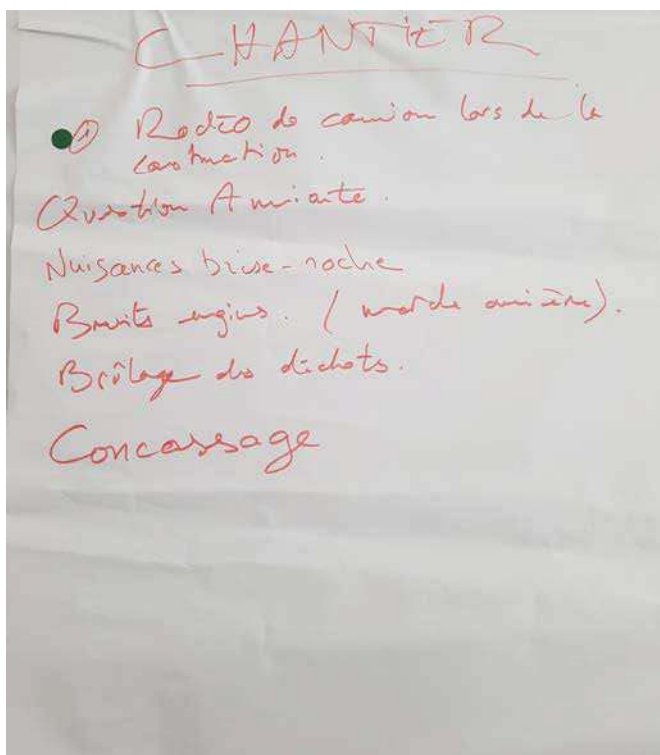 CHANTIER
① Rodéo de camion lors de la
construction.
Question Amiante.
Nuisances brise-roche
Bruits engins. (marche arrière).
Brûlage des déchets.
Concassage